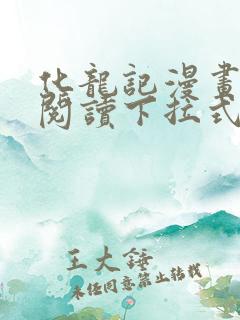 化龍記漫畫
閱讀下拉式
王大錘
未經同意禁止轉載